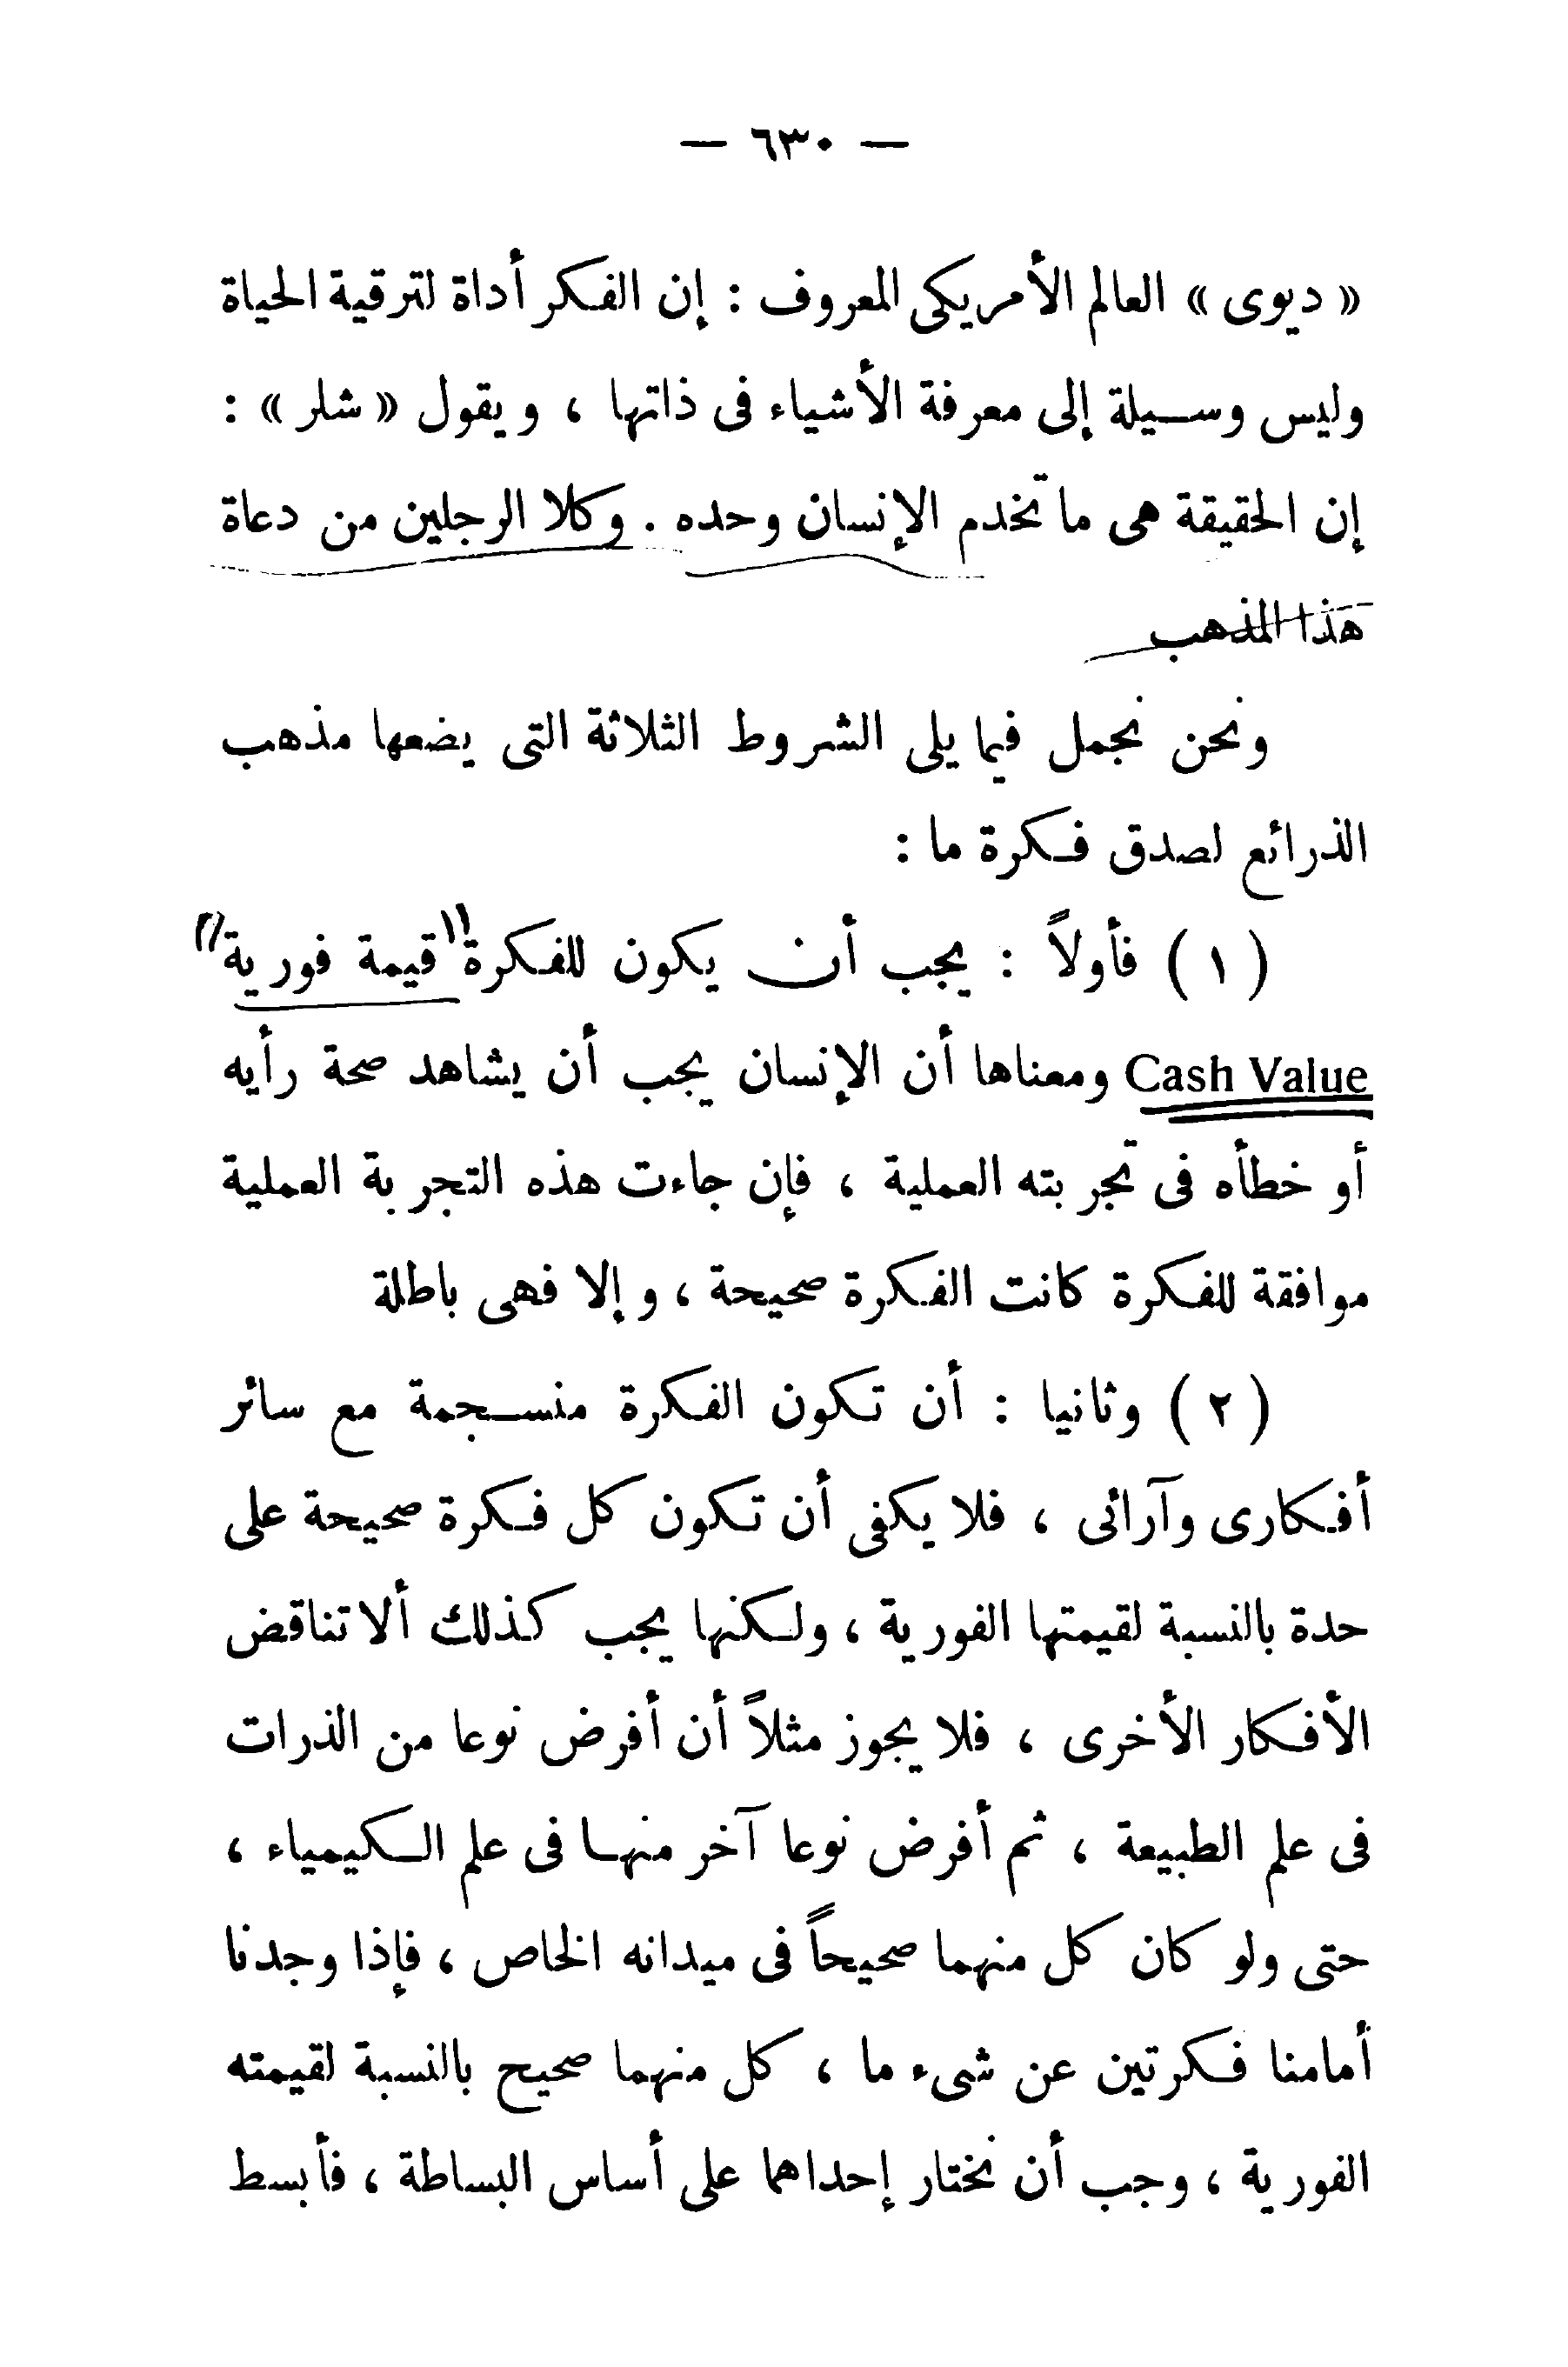 — ٦٣٠ —
« ديوى » العالم الأمريكى المعروف : إن الفكر أداة لترقية الحياة
وليس وسيلة إلى معرفة الأشياء فى ذاتها ، ويقول « شلر » :
إن الحقيقة هى ما تخدم الإنسان وحده . وكلا الرجلين من دعاة
هذا المذهب
ونحن نجمل فيما يلى الشروط الثلاثة التى يضعها مذهب
الذرائع لصدق فكرة ما :
( ١ ) فأولاً : يجب أن يكون للفكرة "قيمة فورية"
Cash Value ومعناها أن الإنسان يجب أن يشاهد صحة رأيه
أو خطأه فى تجربته العملية ، فإن جاءت هذه التجربة العملية
موافقة للفكرة كانت الفكرة صحيحة ، وإلا فهى باطلة
( ٢ ) وثانيا : أن تكون الفكرة منسجمة مع سائر
أفكارى وآرائى ، فلا يكفى أن تكون كل فكرة صحيحة على
حدة بالنسبة لقيمتها الفورية ، ولكنها يجب كذلك ألا تناقض
الأفكار الأخرى ، فلا يجوز مثلاً أن أفرض نوعا من الذرات
فى علم الطبيعة ، ثم أفرض نوعا آخر منها فى علم الكيمياء ،
حتى ولو كان كل منهما صحيحاً فى ميدانه الخاص ، فإذا وجدنا
أمامنا فكرتين عن شىء ما ، كل منهما صحيح بالنسبة لقيمته
الفورية ، وجب أن نختار إحداهما على أساس البساطة ، فأبسط